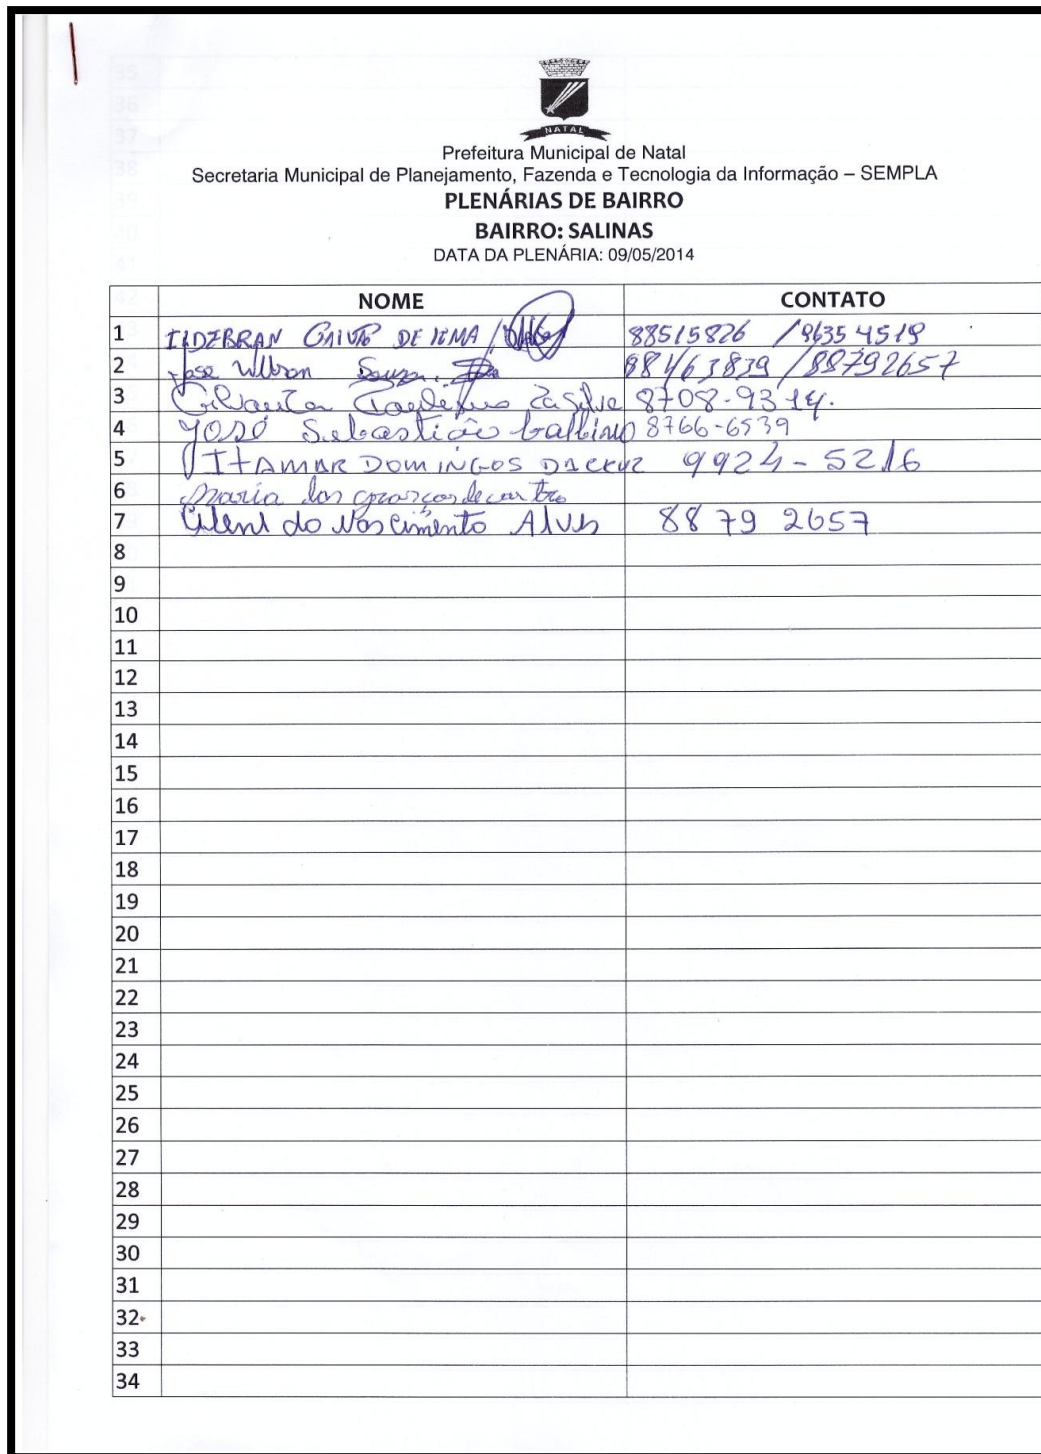 NATAL
Prefeitura Municipal de Natal
Secretaria Municipal de Planejamento, Fazenda e Tecnologia da Informação – SEMPLA
PLENÁRIAS DE BAIRRO
BAIRRO: SALINAS
DATA DA PLENÁRIA: 09/05/2014
NOME CONTATO
1 DE LIMA / 88515826 / 96354519
2 Jose Wilson Souza 88163839 / 88792657
3 da Silva 8708-9314.
4 José Sebastião Galbino 8766-6539
5 ITAMAR DOMINGOS DACRUZ 9924-5216
6 Maria das graças de castro
7 do Nascimento Alves 8879 2657
8
9
10
11
12
13
14
15
16
17
18
19
20
21
22
23
24
25
26
27
28
29
30
31
32
33
34